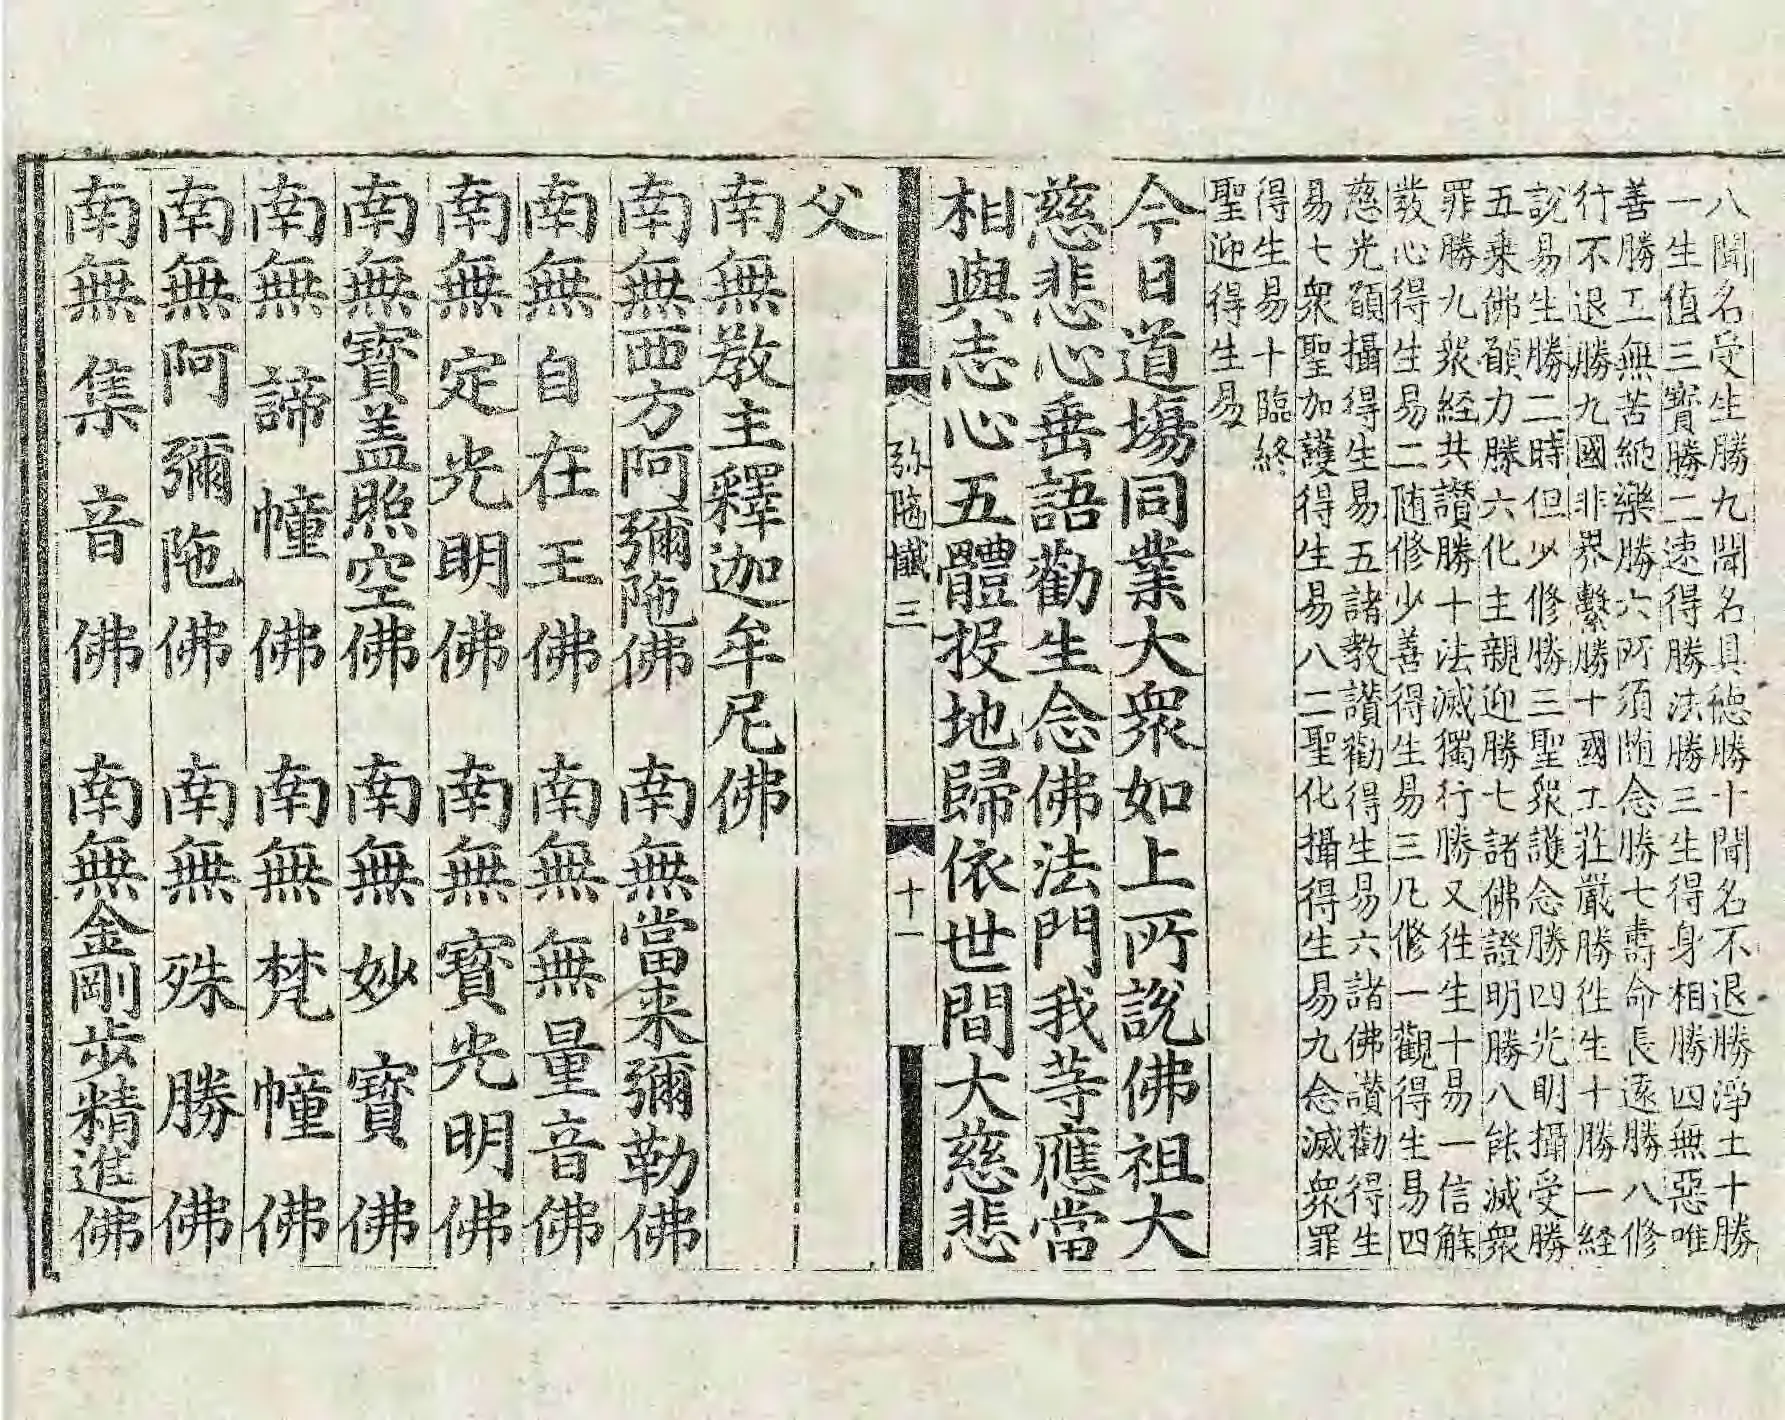 八聞名受生勝九聞名具德勝十聞名不退勝淨土十勝
一生值三寳勝二速得勝法勝三生得身相勝四無惡唯
善勝五無苦絕樂勝六所須随念勝七壽命長遠勝八修
行不退勝九國非界繫勝十國土莊嚴勝徃生十勝一経
說易生勝二時但少修勝三聖衆護念勝四光明攝受勝
五乗佛願力勝六化主親迎勝七諸佛證明勝八能滅衆
罪勝九衆経共讃勝十法滅獨行勝又徃生十易一信解
發心得生易二随修少善得生易三凢修一觀得生易四
慈光願攝得生易五諸教讃勸得生易六諸佛讃勸得生
易七衆聖加護得生易八二聖化攝得生易九念滅衆罪
得生易十臨終
聖迎得生易
今日道塲同業大衆如上所說佛祖大
慈悲心垂語勸生念佛法門我等應當
相與志心五體投地歸依世間大慈悲
弥陁懺三
十一
父
南無教主釋迦牟尼佛
南無西方阿彌陁佛　南無當来彌勒佛
南無自在王佛　南無無量音佛
南無定光明佛　南無寳光明佛
南無寳盖照空佛　南無妙寳佛
南無諦幢佛　南無梵幢佛
南無阿彌陁佛　南無殊勝佛
南無集音佛　南無金剛步精進佛